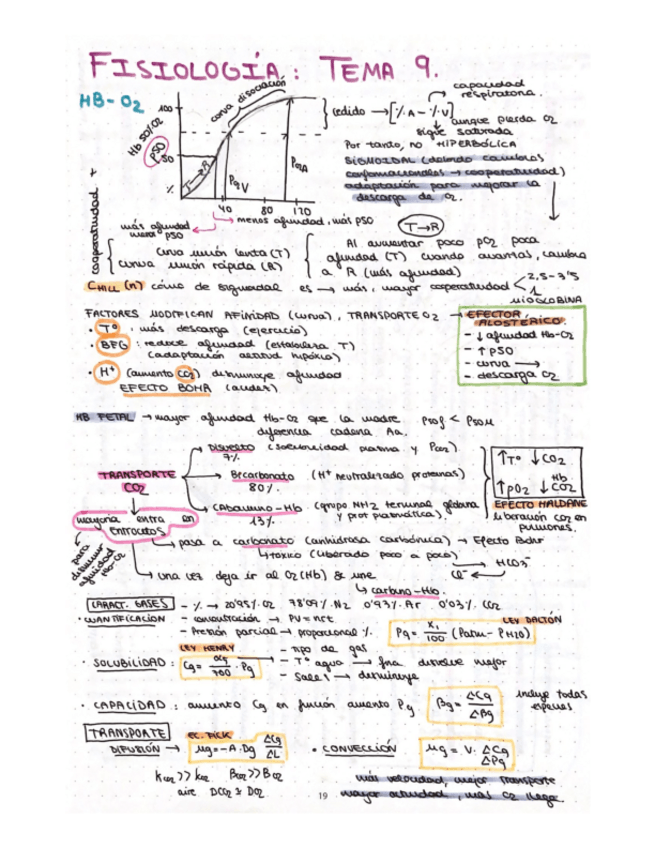 FISIOLOGÍA: TEMA 9.
HB-O2
curva disociación
capacidad respiratoria.
100
cedido → [%A - %V]
aunque pierda O2
sigue saturada
Hb 50/O2
P50
50
%
T→R
PqV
PqA
40 80 120
Por tanto, no HIPERBÓLICA
SIGMOIDAL (debido cambios
conformacionales → cooperatividad)
adaptación para mejorar la
descarga de O2.
más afinidad menor P50
menos afinidad, más P50
T→R
cooperatividad +
curva unión lenta (T)
curva unión rápida (R)
Al aumentar poco pO2 poca
afinidad (T) cuando avanzas, cambia
a R (más afinidad)
C HILL (n) cómo de sigmoidal es → más, mayor cooperatividad
2,5-3'5
1
MIOGLOBINA
FACTORES MODIFICAN AFINIDAD (curva), TRANSPORTE O2 → EFECTOR ALOSTÉRICO.
· Tº: más descarga (ejercicio)
· BFG: reduce afinidad (estabiliza T)
(adaptación altitud hipóxica)
· H+ (aumento CO2) disminuye afinidad
EFECTO BOHR (acidez)
- ↓ afinidad Hb-O2
- ↑ P50
- curva →
- descarga O2
HB FETAL → mayor afinidad Hb-O2 que la madre P50f < P50M
diferencia cadena Aa.
TRANSPORTE CO2
Disuelto (solubilidad plasma y PCO2)
7%
Bicarbonato (H+ neutralizado proteínas)
80%
CAbamino-Hb (grupo NH2 terminal globina
13% y prot plasmática).
↑Tº ↓CO2
↑pO2 ↓Hb CO2
EFECTO HALDANE
liberación CO2 en
pulmones.
mayoría entra en
eritrocitos
para disminuir afinidad Hb-O2
pasa a carbonato (anhidrasa carbónica) → Efecto Bohr
↳tóxico (liberado poco a poco)
HCO3-
Cl-
una vez deja ir al O2 (Hb) & une
↳ carbino-Hb.
CARACT. GASES
- % → 20'95% O2 78'09% N2 0'93% Ar 0'03% CO2
· CUANTIFICACIÓN
- concentración → PV = nRT
- Presión parcial → proporcional %.
LEY DALTON
Pg = X1/100 (Patm - PH2O)
LEY HENRY
· SOLUBILIDAD: Cg = αg/760 · Pg
- Tipo de gas
- Tº agua → fría disuelve mejor
- Sales → disminuye
· CAPACIDAD: aumento Cg en función aumento Pg
βg = ΔCg/ΔPg
incluye todas
especies
TRANSPORTE
EC. FICK
DIFUSIÓN → Mg = -A · Dg ΔCg/ΔL
· CONVECCIÓN Mg = V · ΔCg/ΔPg
KCO2 >> KO2 BCO2 >> BO2
aire DCO2 ± DO2
más velocidad, mejor transporte
mayor actividad, más O2 llega.
19